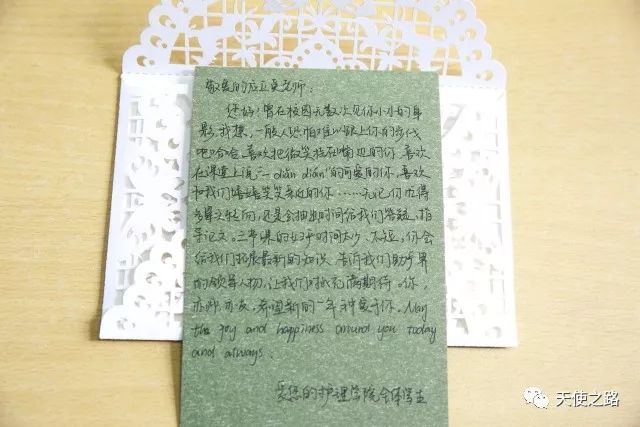 敬爱的应立英老师:
您好!曾在校园无数次见你小小的身
影,我想,一般人恐怕难以跟上你的步伐
吧哈哈。喜欢把微笑挂在嘴边的你,喜欢
在课堂上说“一diān diān”的可爱的你,喜欢
和我们嘻嘻笑笑亲近的你……无论你忙得
多晕头转向,还是会抽出时间给我们答疑、指
导论文。三节课的时间太少、不过,你会
给我们拓展最新的知识、告诉我们助产界
的领军人物,让我们对未充满期待。你,
亦师亦友,希望新的一年钟爱于你。May
the joy and happiness around you today
and always.
爱您的护理学院全体学生
天使之路